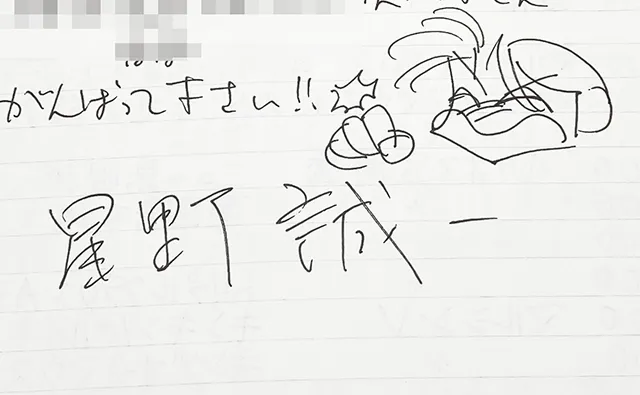 がんばって下さい!!
星野 誠一